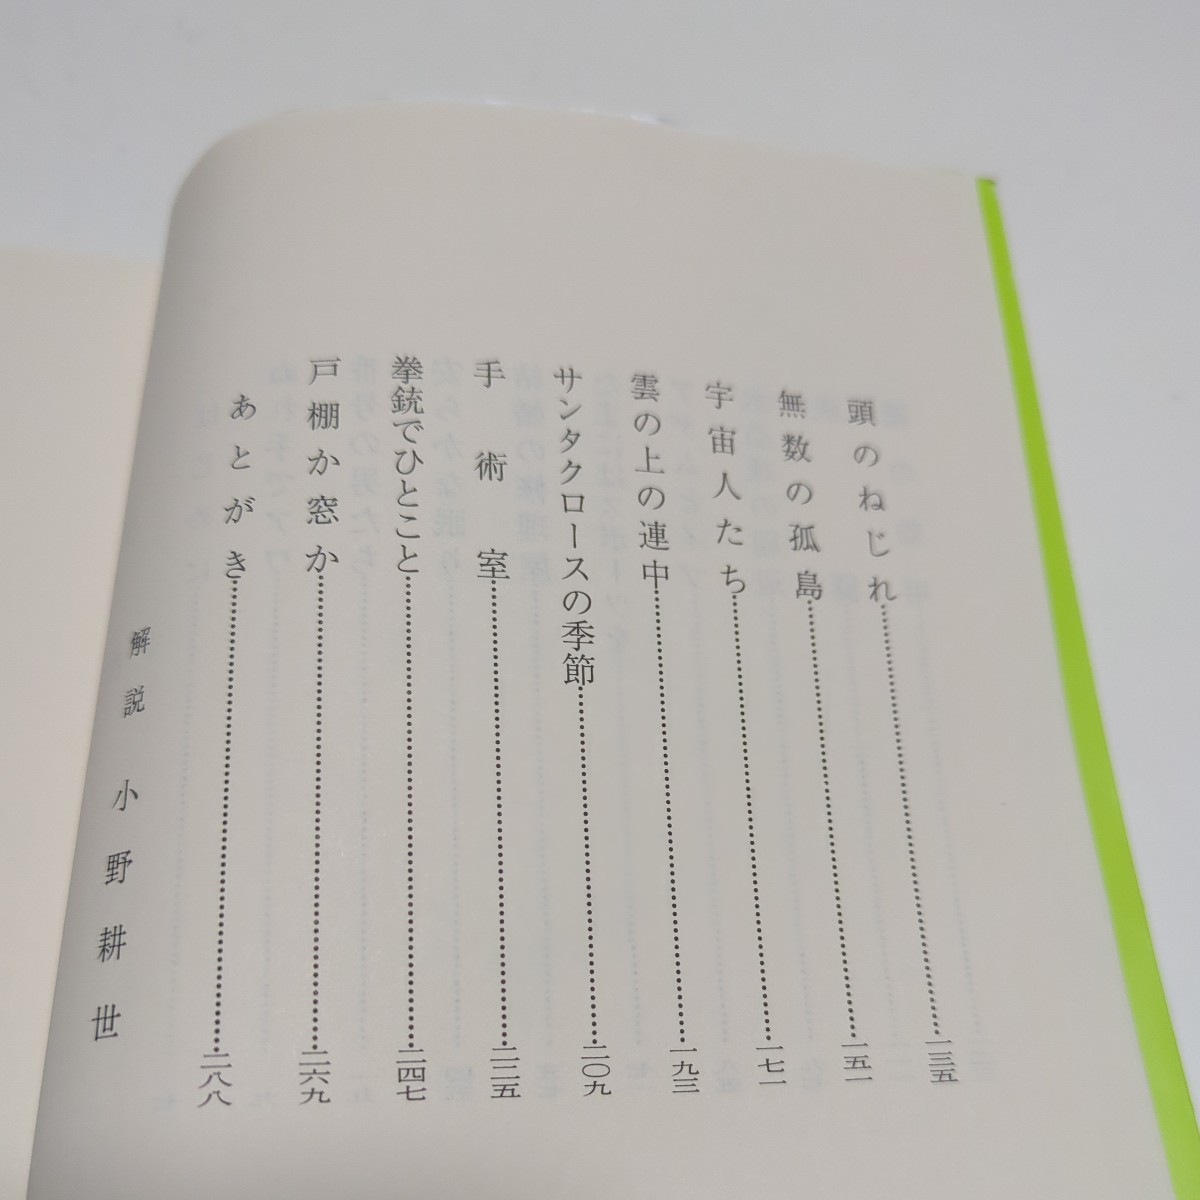 頭のねじれ…………一三五
無数の孤島…………一五一
宇宙人たち…………一七一
雲の上の連中…………一九三
サンタクロースの季節…………二〇九
手術室…………二二五
拳銃でひとこと…………二四七
戸棚か窓か…………二六九
あとがき…………二八八
解説 小野耕世